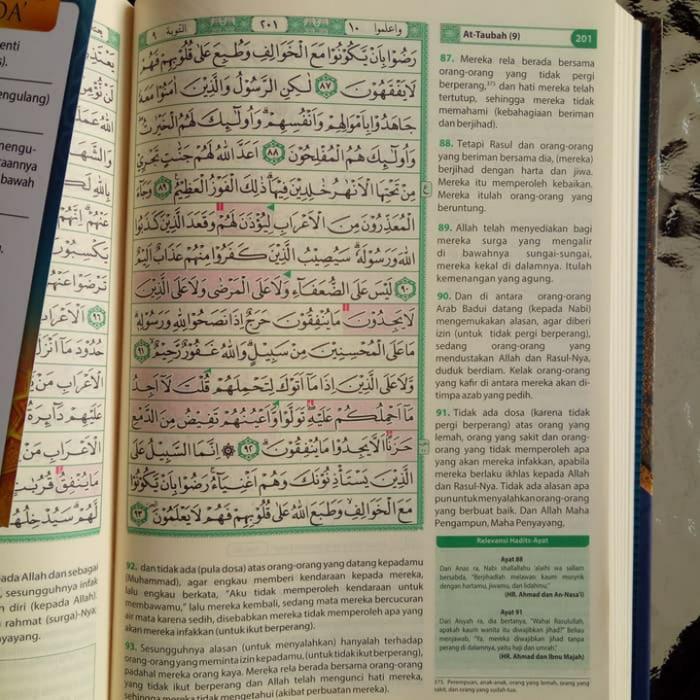 DA'
enti
s).
engulang)
mengu-
raannya
bawah
ada Allah dan sebagai
sesungguhnya infak
diri (kepada Allah).
rahmat (surga)-Nya;
nyayang.
التوبة ٩
٢٠١
واعلموا ١٠
رَضُوْا بِاَنْ يَّكُوْنُوْا مَعَ الْخَوَالِفِ وَطُبِعَ عَلٰى قُلُوْبِهِمْ فَهُمْ
لَا يَفْقَهُوْنَ ٨٧ لٰكِنِ الرَّسُوْلُ وَالَّذِيْنَ اٰمَنُوْا مَعَهٗ
جَاهَدُوْا بِاَمْوَالِهِمْ وَاَنْفُسِهِمْ ۗ وَاُولٰۤىِٕكَ لَهُمُ الْخَيْرٰتُ ۖ
وَاُولٰۤىِٕكَ هُمُ الْمُفْلِحُوْنَ ٨٨ اَعَدَّ اللّٰهُ لَهُمْ جَنّٰتٍ تَجْرِيْ
مِنْ تَحْتِهَا الْاَنْهٰرُ خٰلِدِيْنَ فِيْهَا ۗ ذٰلِكَ الْفَوْزُ الْعَظِيْمُ ٨٩ وَجَاۤءَ
الْمُعَذِّرُوْنَ مِنَ الْاَعْرَابِ لِيُؤْذَنَ لَهُمْ وَقَعَدَ الَّذِيْنَ كَذَبُوا
اللّٰهَ وَرَسُوْلَهٗ ۗ سَيُصِيْبُ الَّذِيْنَ كَفَرُوْا مِنْهُمْ عَذَابٌ اَلِيْمٌ
٩٠ لَيْسَ عَلَى الضُّعَفَاۤءِ وَلَا عَلَى الْمَرْضٰى وَلَا عَلَى الَّذِيْنَ
لَا يَجِدُوْنَ مَا يُنْفِقُوْنَ حَرَجٌ اِذَا نَصَحُوْا لِلّٰهِ وَرَسُوْلِهٖ ۗ
مَا عَلَى الْمُحْسِنِيْنَ مِنْ سَبِيْلٍ ۗ وَاللّٰهُ غَفُوْرٌ رَّحِيْمٌ ۙ ٩١
وَّلَا عَلَى الَّذِيْنَ اِذَا مَآ اَتَوْكَ لِتَحْمِلَهُمْ قُلْتَ لَآ اَجِدُ
مَآ اَحْمِلُكُمْ عَلَيْهِ ۖ تَوَلَّوْا وَّاَعْيُنُهُمْ تَفِيْضُ مِنَ الدَّمْعِ
حَزَنًا اَلَّا يَجِدُوْا مَا يُنْفِقُوْنَ ۗ ٩٢ ۞ اِنَّمَا السَّبِيْلُ عَلَى
الَّذِيْنَ يَسْتَأْذِنُوْنَكَ وَهُمْ اَغْنِيَاۤءُ ۚ رَضُوْا بِاَنْ يَّكُوْنُوْا
مَعَ الْخَوَالِفِ ۙ وَطَبَعَ اللّٰهُ عَلٰى قُلُوْبِهِمْ فَهُمْ لَا يَعْلَمُوْنَ ٩٣
92. dan tidak ada (pula dosa) atas orang-orang yang datang kepadamu
(Muhammad), agar engkau memberi kendaraan kepada mereka,
lalu engkau berkata, "Aku tidak memperoleh kendaraan untuk
membawamu," lalu mereka kembali, sedang mata mereka bercucuran
air mata karena sedih, disebabkan mereka tidak memperoleh apa yang
akan mereka infakkan (untuk ikut berperang).
93. Sesungguhnya alasan (untuk menyalahkan) hanyalah terhadap
orang-orang yang meminta izin kepadamu, (untuk tidak ikut berperang),
padahal mereka orang kaya. Mereka rela berada bersama orang-orang
yang tidak ikut berperang dan Allah telah mengunci hati mereka,
sehingga mereka tidak mengetahui (akibat perbuatan mereka).
At-Taubah (9)
201
87. Mereka rela berada bersama
orang-orang yang tidak pergi
berperang,³⁷⁵ dan hati mereka telah
tertutup, sehingga mereka tidak
memahami (kebahagiaan beriman
dan berjihad).
88. Tetapi Rasul dan orang-orang
yang beriman bersama dia, (mereka)
berjihad dengan harta dan jiwa.
Mereka itu memperoleh kebaikan.
Mereka itulah orang-orang yang
beruntung.
89. Allah telah menyediakan bagi
mereka surga yang mengalir
di bawahnya sungai-sungai,
mereka kekal di dalamnya. Itulah
kemenangan yang agung.
90. Dan di antara orang-orang
Arab Badui datang (kepada Nabi)
mengemukakan alasan, agar diberi
izin (untuk tidak pergi berperang),
sedang orang-orang yang
mendustakan Allah dan Rasul-Nya,
duduk berdiam. Kelak orang-orang
yang kafir di antara mereka akan di-
timpa azab yang pedih.
91. Tidak ada dosa (karena tidak
pergi berperang) atas orang yang
lemah, orang yang sakit dan orang-
orang yang tidak memperoleh apa
yang akan mereka infakkan, apabila
mereka berlaku ikhlas kepada Allah
dan Rasul-Nya. Tidak ada alasan apa
pun untuk menyalahkan orang-orang
yang berbuat baik. Dan Allah Maha
Pengampun, Maha Penyayang,
Relevansi Hadits-Ayat
Ayat 88
Dari Anas ra, Nabi shallallahu 'alaihi wa sallam
bersabda, "Berjihadlah melawan kaum musyrik
dengan hartamu, jiwamu, dan lidahmu."
(HR. Ahmad dan An-Nasa'i)
Ayat 91
Dari Aisyah ra, dia bertanya, "Wahai Rasulullah,
apakah kaum wanita itu diwajibkan jihad?" Beliau
menjawab, "Ya, mereka diwajibkan jihad tanpa
perang di dalamnya, yaitu haji dan umrah."
(HR. Ahmad dan Ibnu Majah)
375. Perempuan, anak-anak, orang yang lemah, orang yang
sakit, dan orang yang sudah tua.